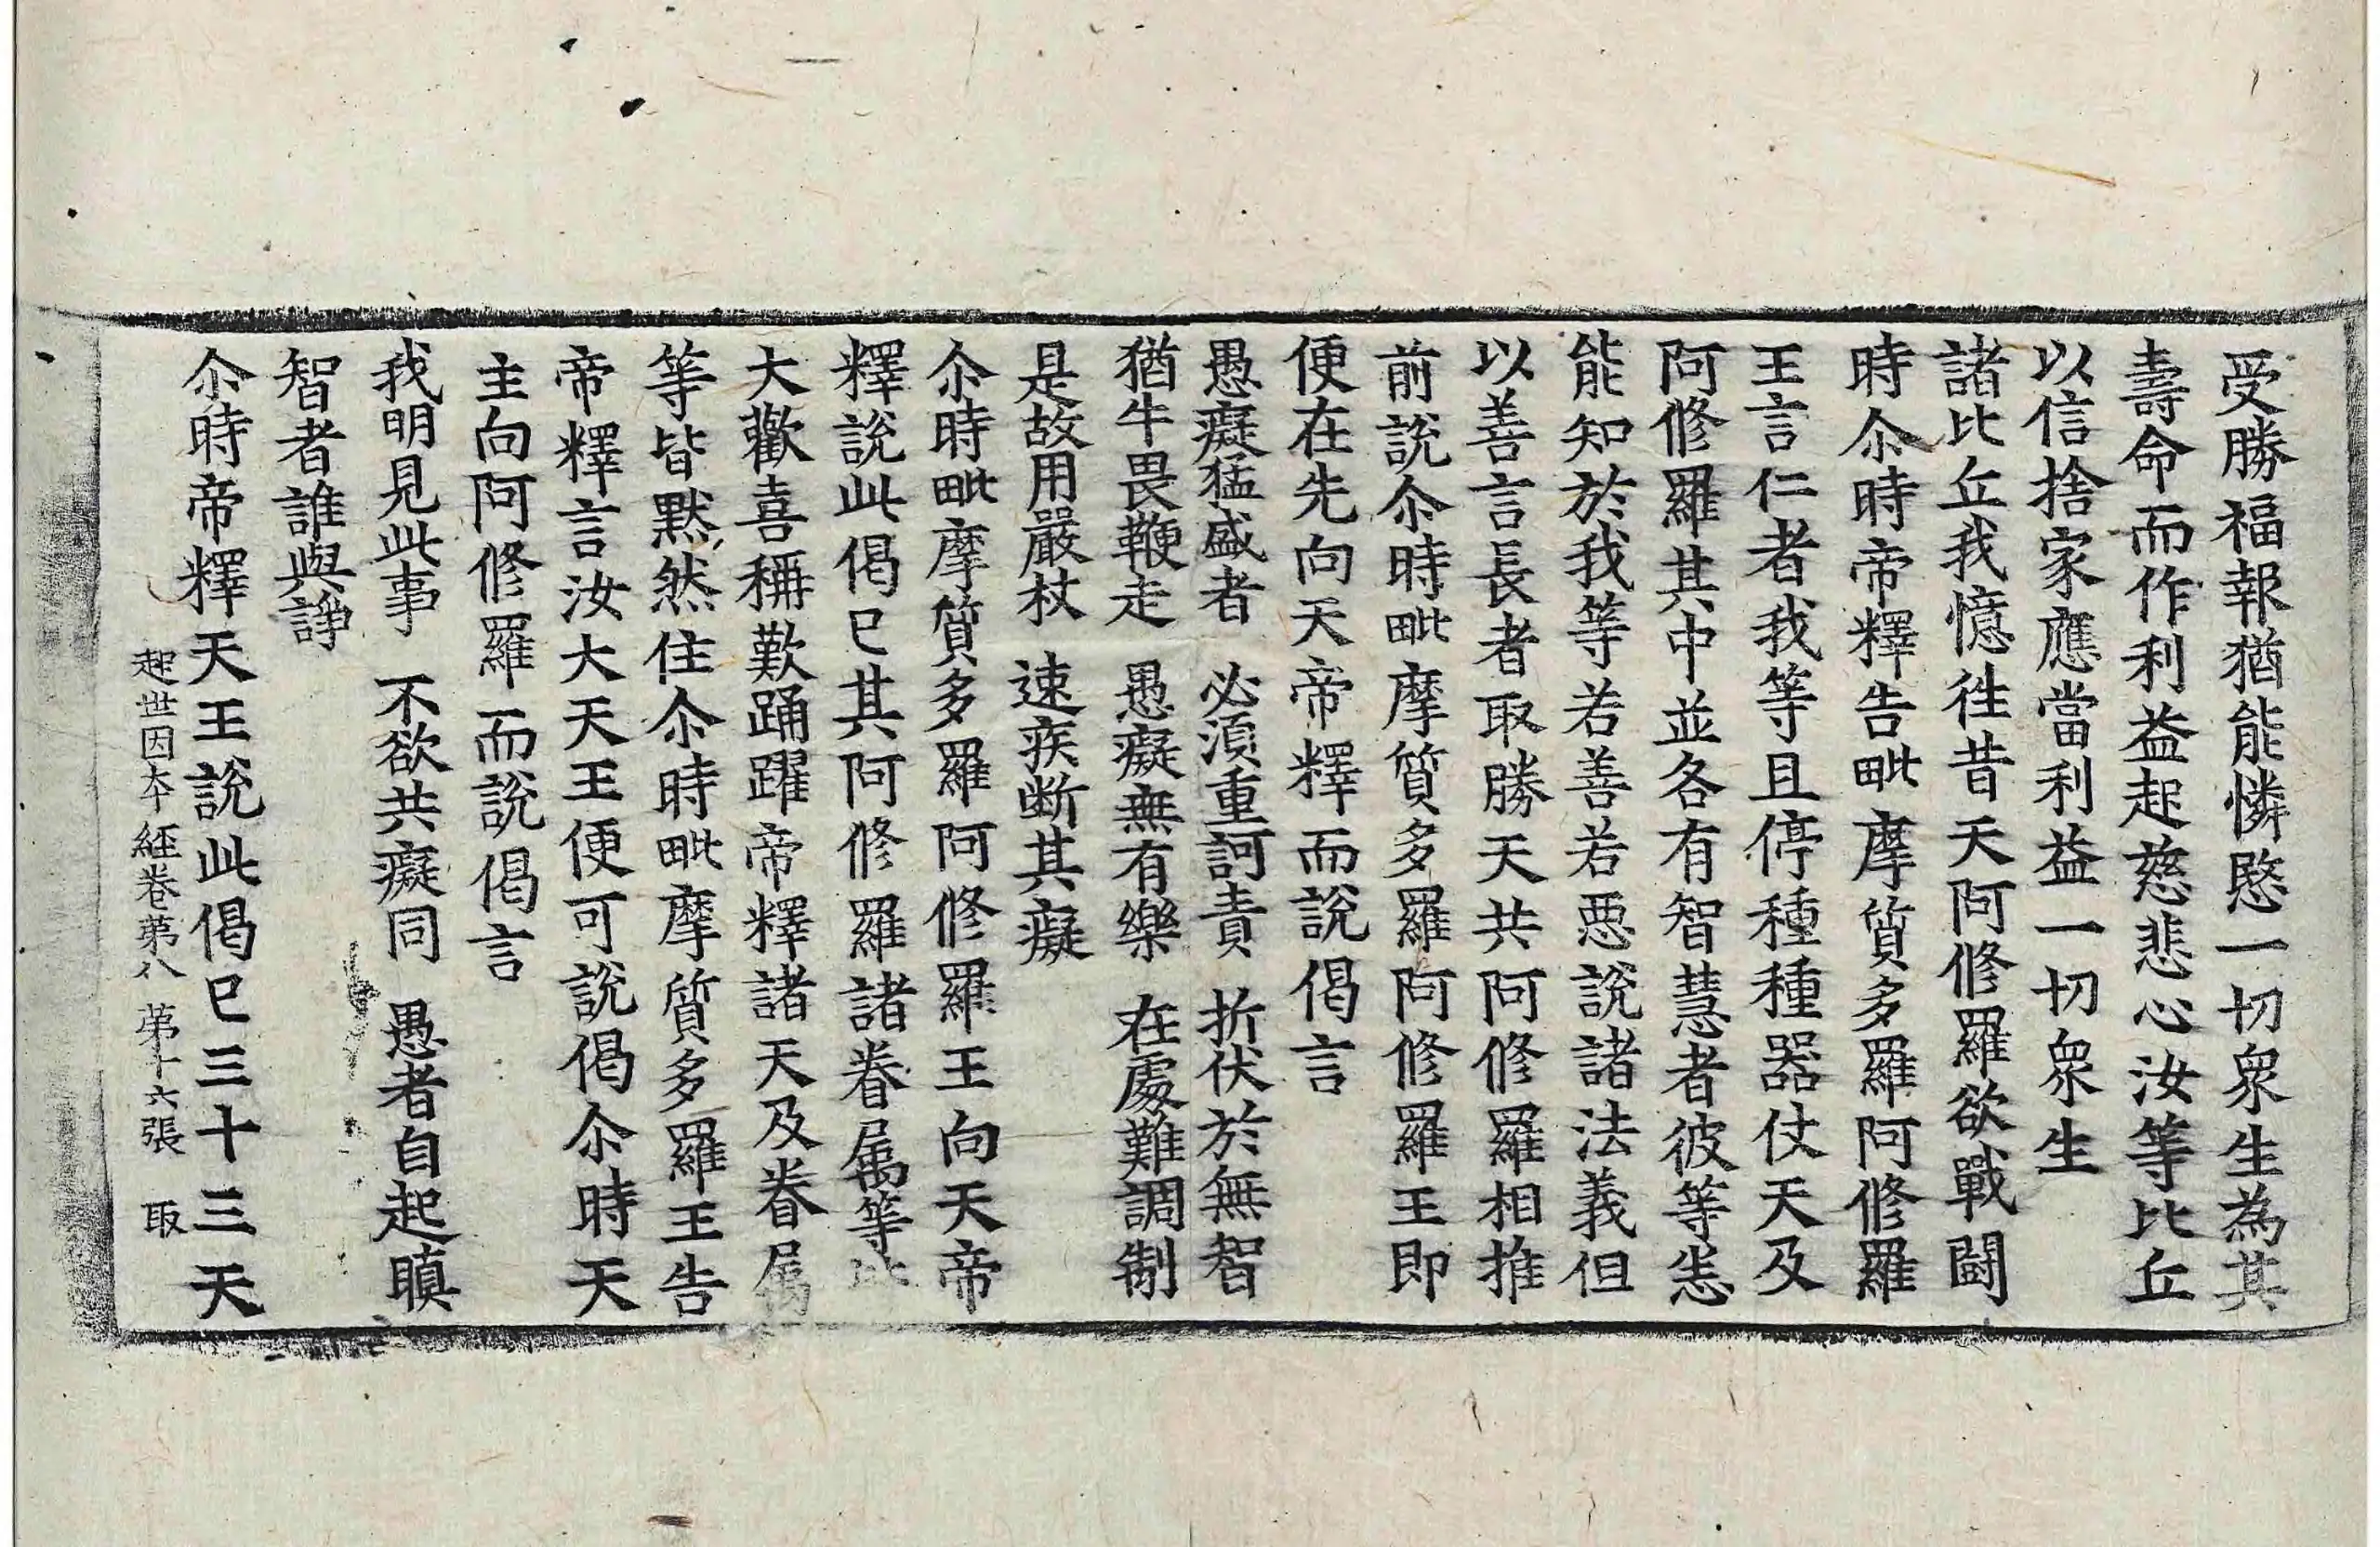 受勝福報猶能憐愍一切衆生為其
壽命而作利益起慈悲心汝等比丘
以信捨家應當利益一切衆生
諸比丘我憶往昔天阿修羅欲戰鬪
時尒時帝釋告毗摩質多羅阿修羅
王言仁者我等且停種種器仗天及
阿修羅其中並各有智慧者彼等悉
能知於我等若善若惡說諸法義但
以善言長者取勝天共阿修羅相推
前說尒時毗摩質多羅阿修羅王即
便在先向天帝釋而說偈言
愚癡猛盛者　必須重訶責　折伏於無智
猶牛畏鞭走　愚癡無有樂　在處難調制
是故用嚴杖　速疾断其癡
尒時毗摩質多羅阿修羅王向天帝
釋說此偈已其阿修羅諸眷属等皆
大歡喜稱歎踊躍帝釋諸天及眷属
等皆默然住尒時毗摩質多羅王告
帝釋言汝大天王便可說偈尒時天
主向阿修羅而說偈言
我明見此事　不欲共癡同　愚者自起瞋
智者誰與諍
尒時帝釋天王說此偈已三十三天
起世因本經卷第八　第十六張　取